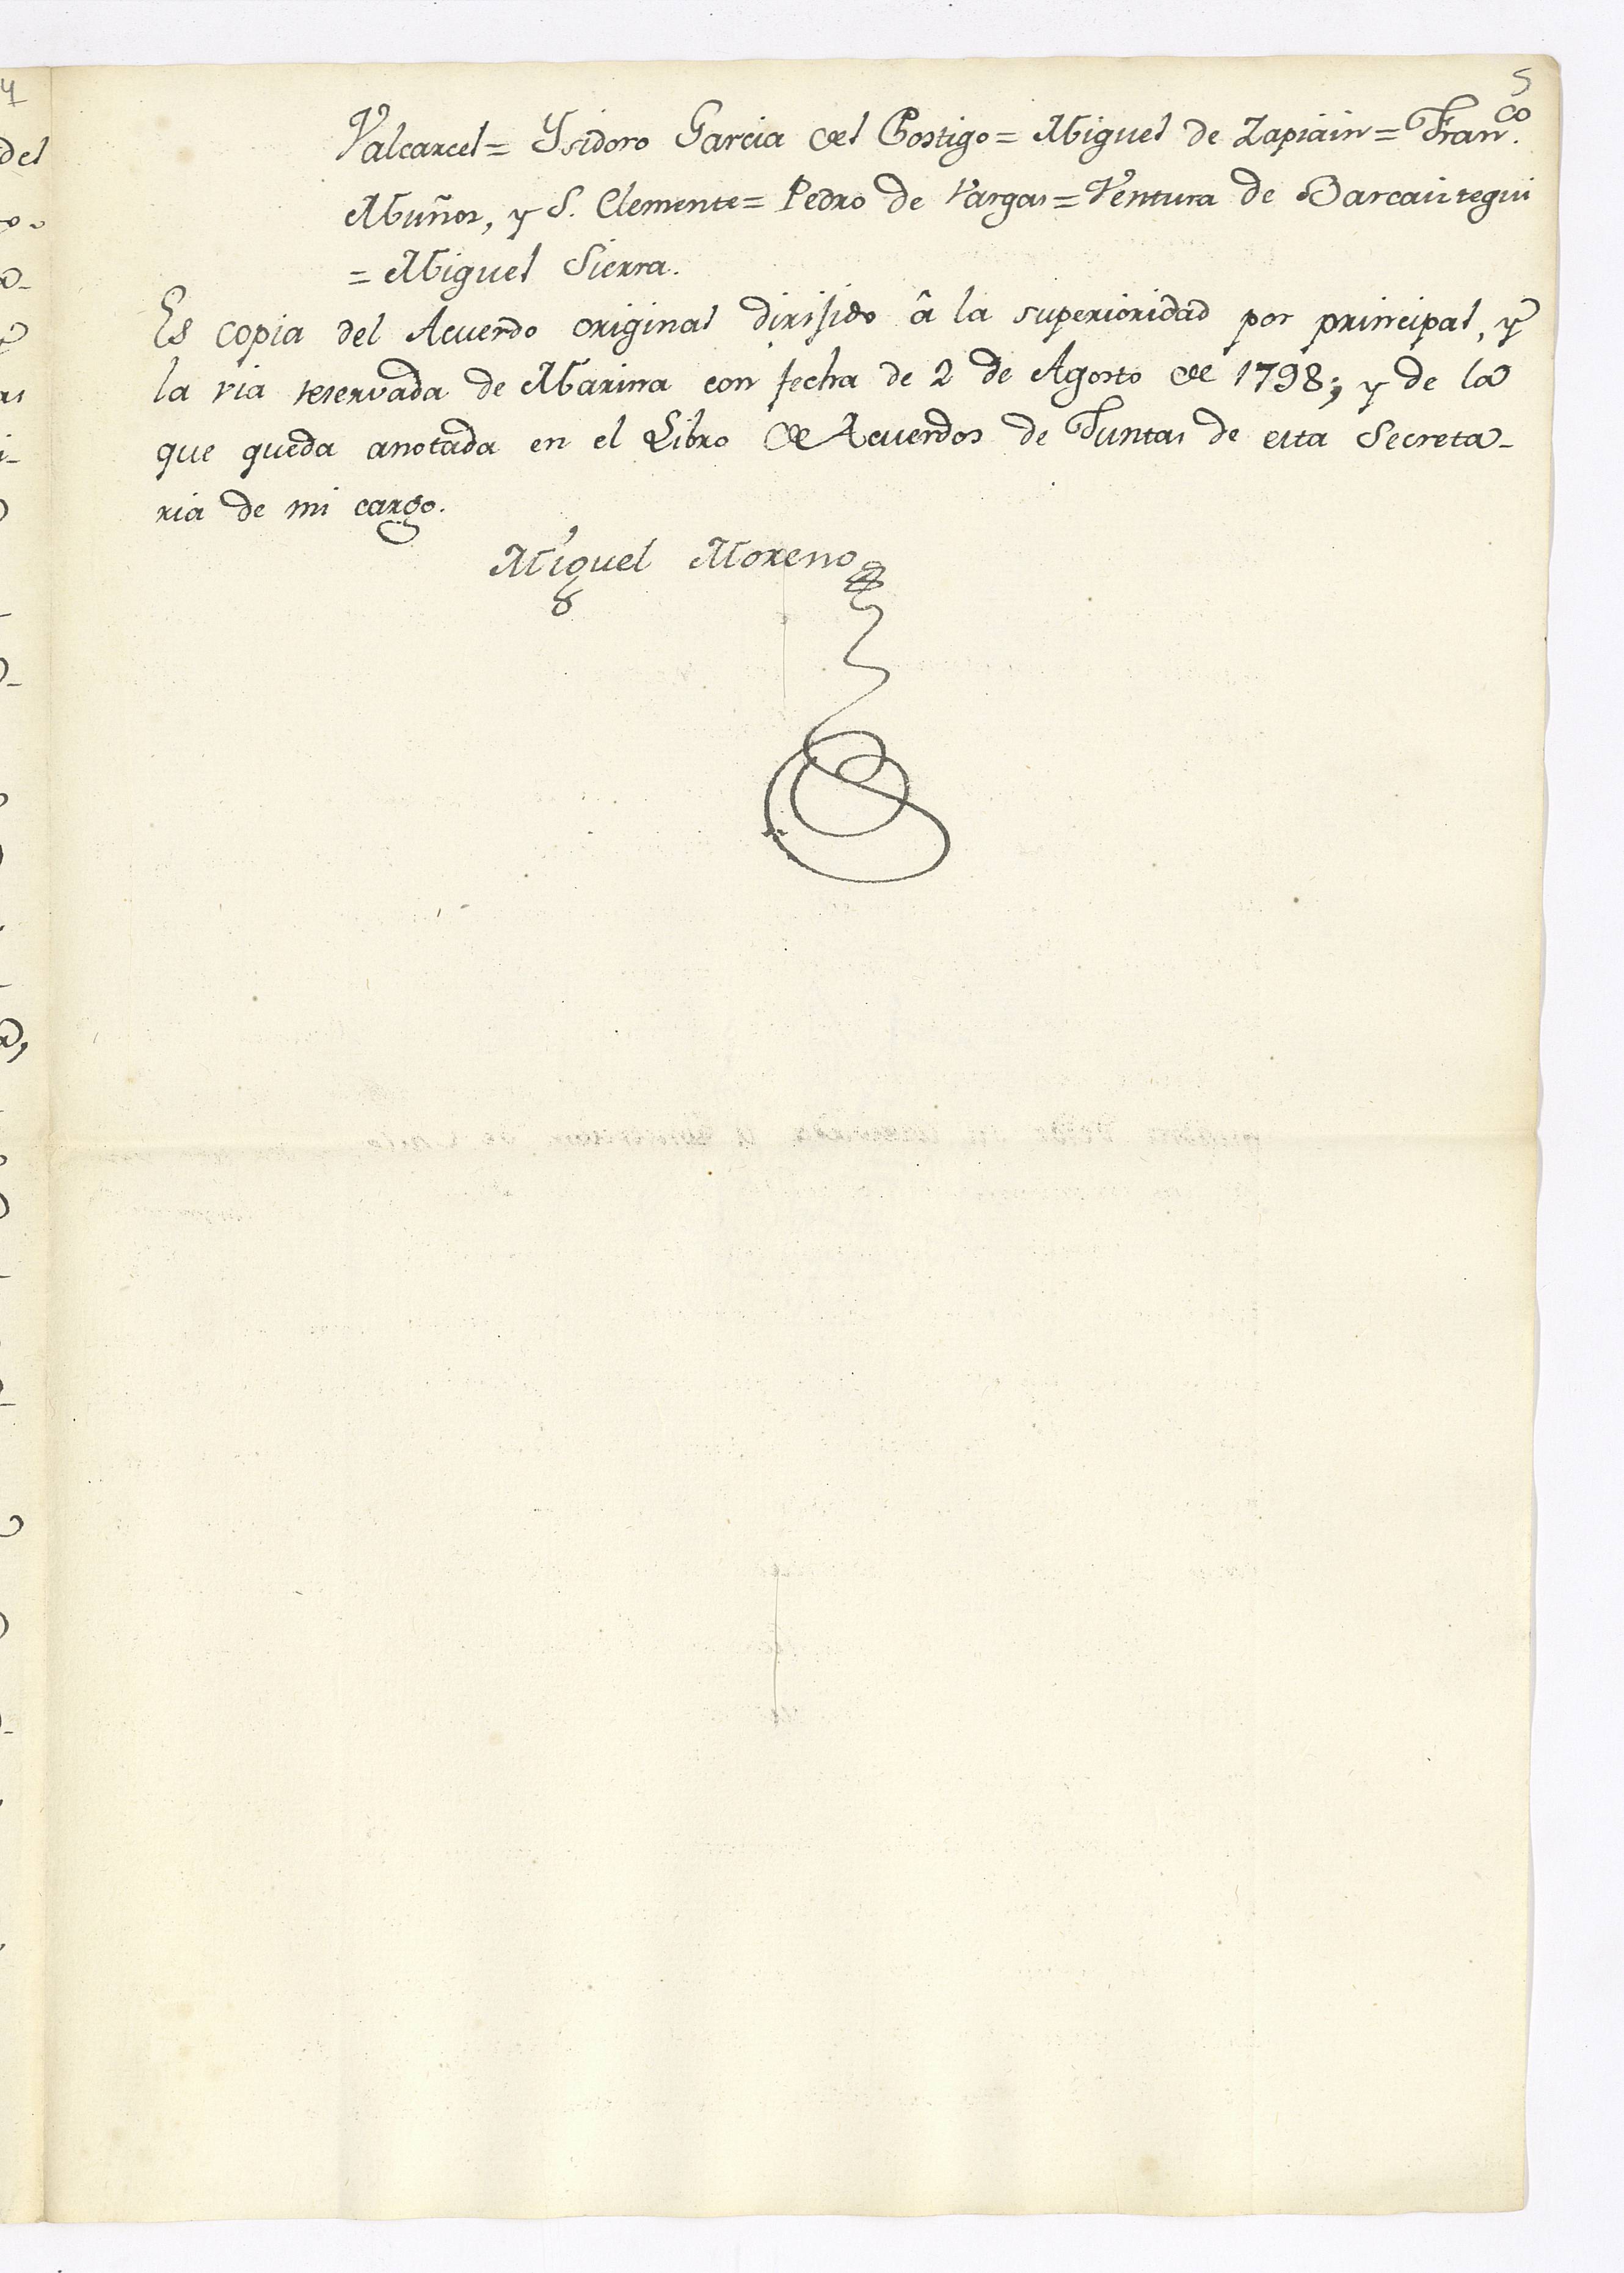 5
Valcarcel= Ysidoro Garcia del Postigo= Miguel de Zapiain= Fran.co
Muñoz, y S. Clemente= Pedro de Vargas= Ventura de Barcaiztegui
= Miguel Sierra.
Es copia del Acuerdo original dirijido â la superioridad por principal, y
la via reservada de Marina con fecha de 2 de Agosto de 1798; y de la
que queda anotada en el Libro de Acuerdos de Juntas de esta Secreta-
ria de mi cargo.
Miguel Moreno